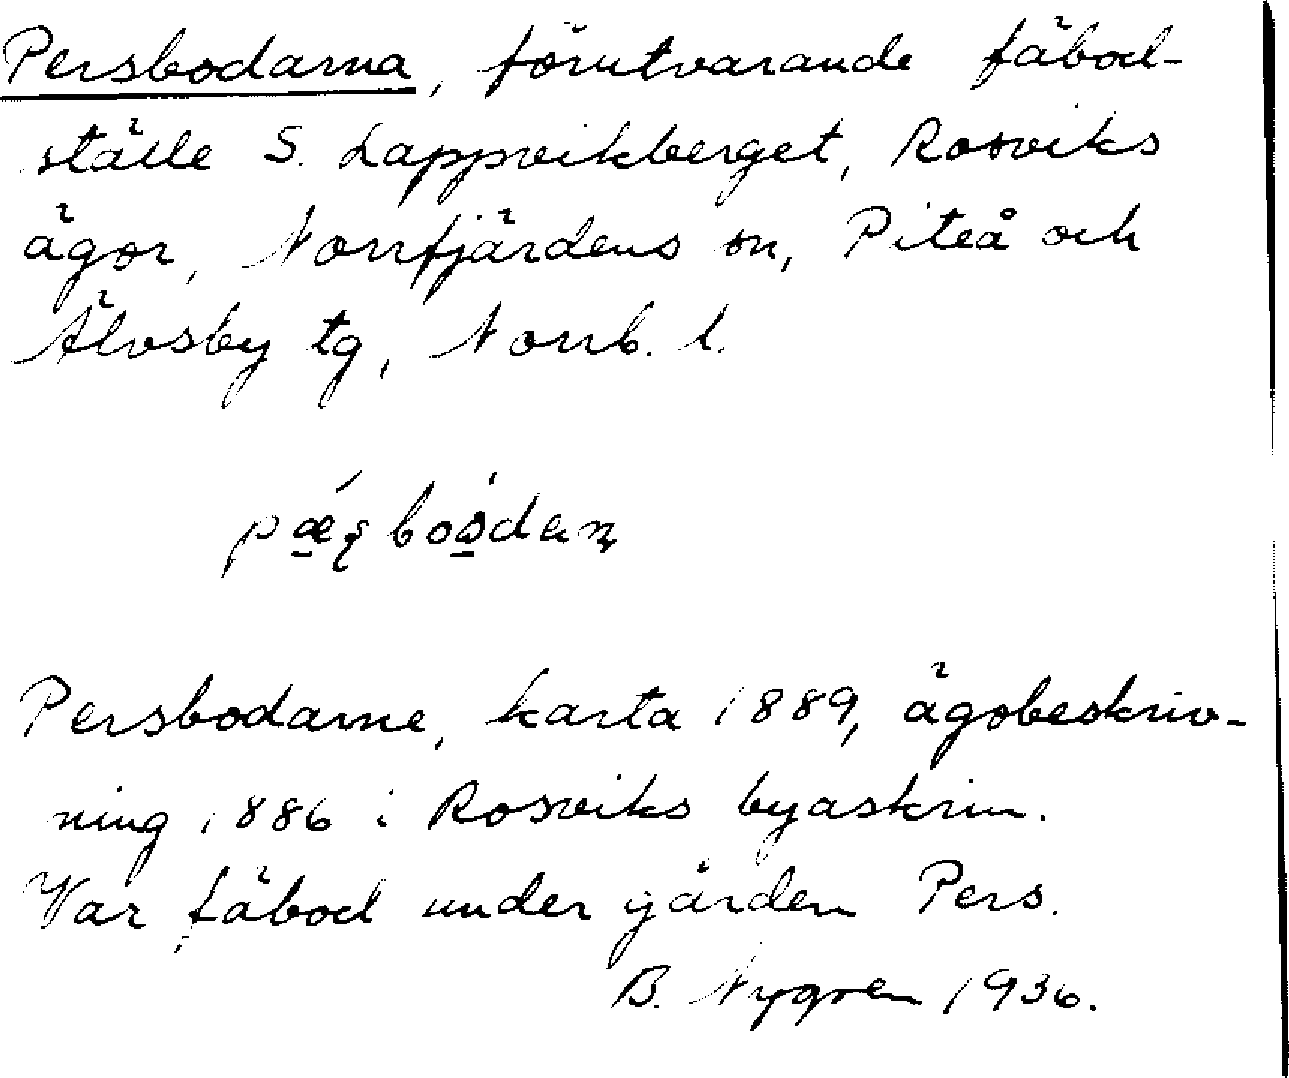 Persbodarna, förutvarande fäbod-
ställe S. Lappvikberget, Rosviks
ägor, Norrfjärdens sn, Piteå och
Älvsby tg, Norrb. l.
Persbodarne, karta 1889, ägobeskriv-
ning 1886 i Rosviks byaskrin.
Var fäbod under gården Pers.
B. Nygren 1936.